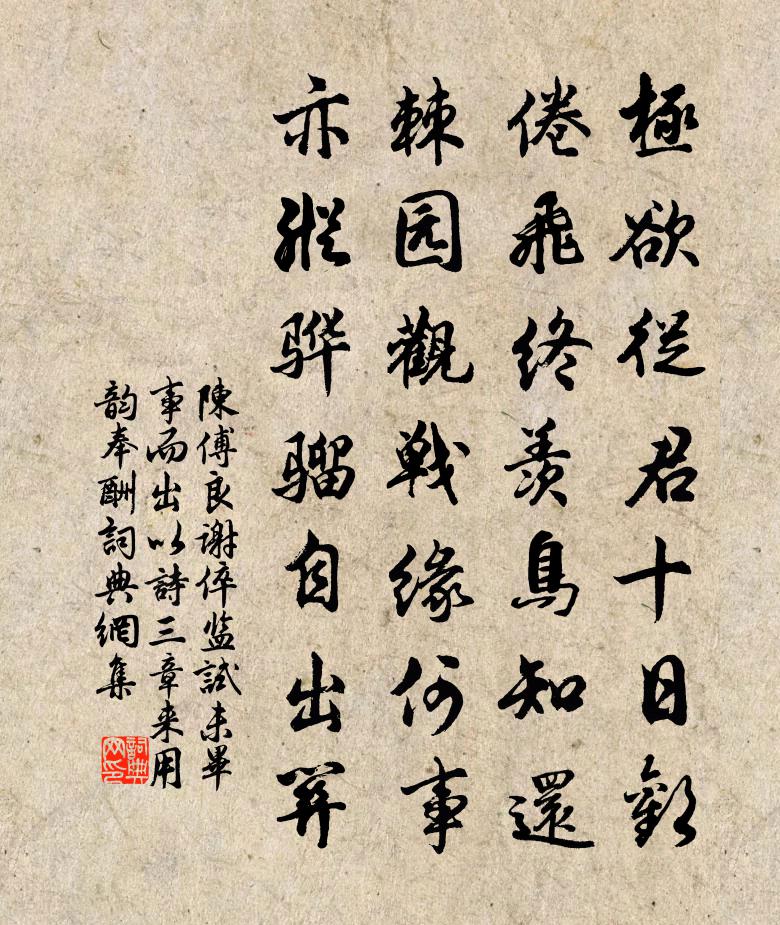 極欲從君十日歡
倦飛終羨鳥知還
棘园觀戰緣何事
亦縱骅骝自出關
陳傅良謝倅监試未畢
事而出以詩三章来用
韵奉酬詞典網集
詞典网印